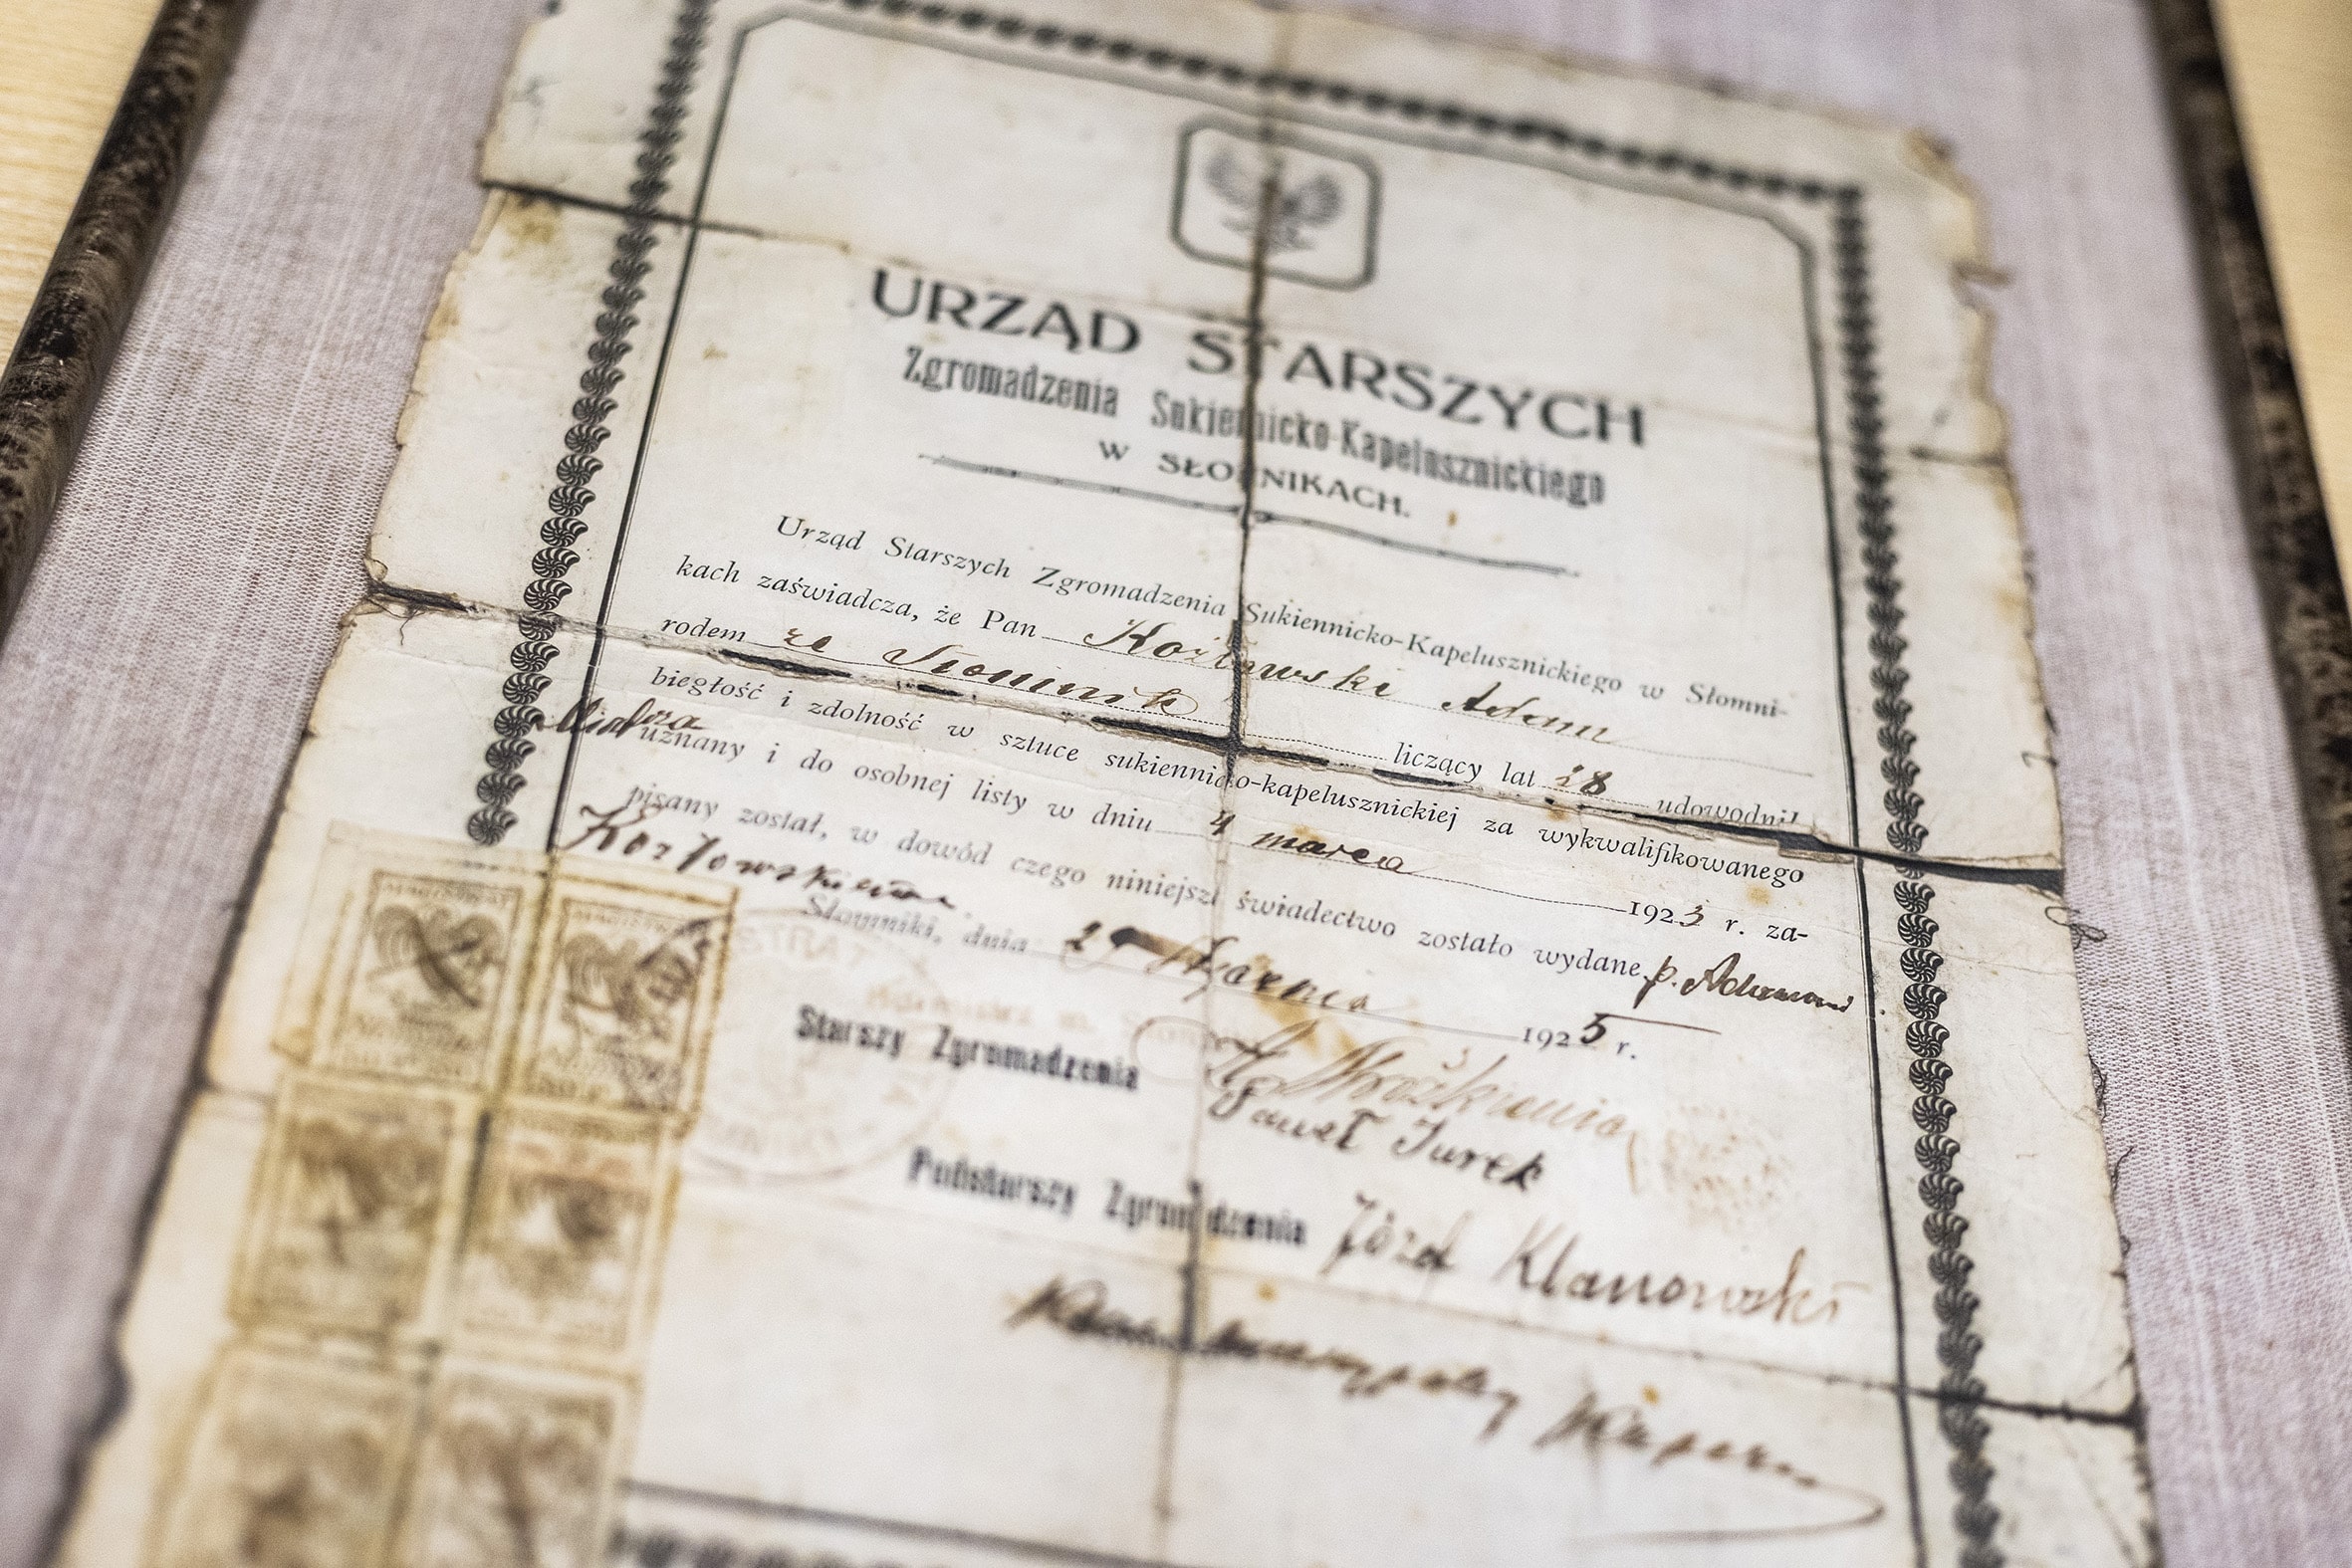 URZĄD STARSZYCH
Zgromadzenia Sukiennicko-Kapelusznickiego
W SŁOMNIKACH.
Urząd Starszych Zgromadzenia Sukiennicko-Kapelusznickiego w Słomni-
kach zaświadcza, że Pan Kozłowski Adam
rodem ze Słomnik liczący lat 28 udowodnił
biegłość i zdolność w sztuce sukiennicko-kapelusznickiej za wykwalifikowanego
uznany i do osobnej listy w dniu 4 marca 1923 r. za-
pisany został, w dowód czego niniejsze świadectwo zostało wydane p. Adamowi
Kozłowskiemu.
Słomniki, dnia 1925 r.
Starszy Zgromadzenia
Paweł Jurek
Podstarszy Zgromadzenia Józef Klanowski